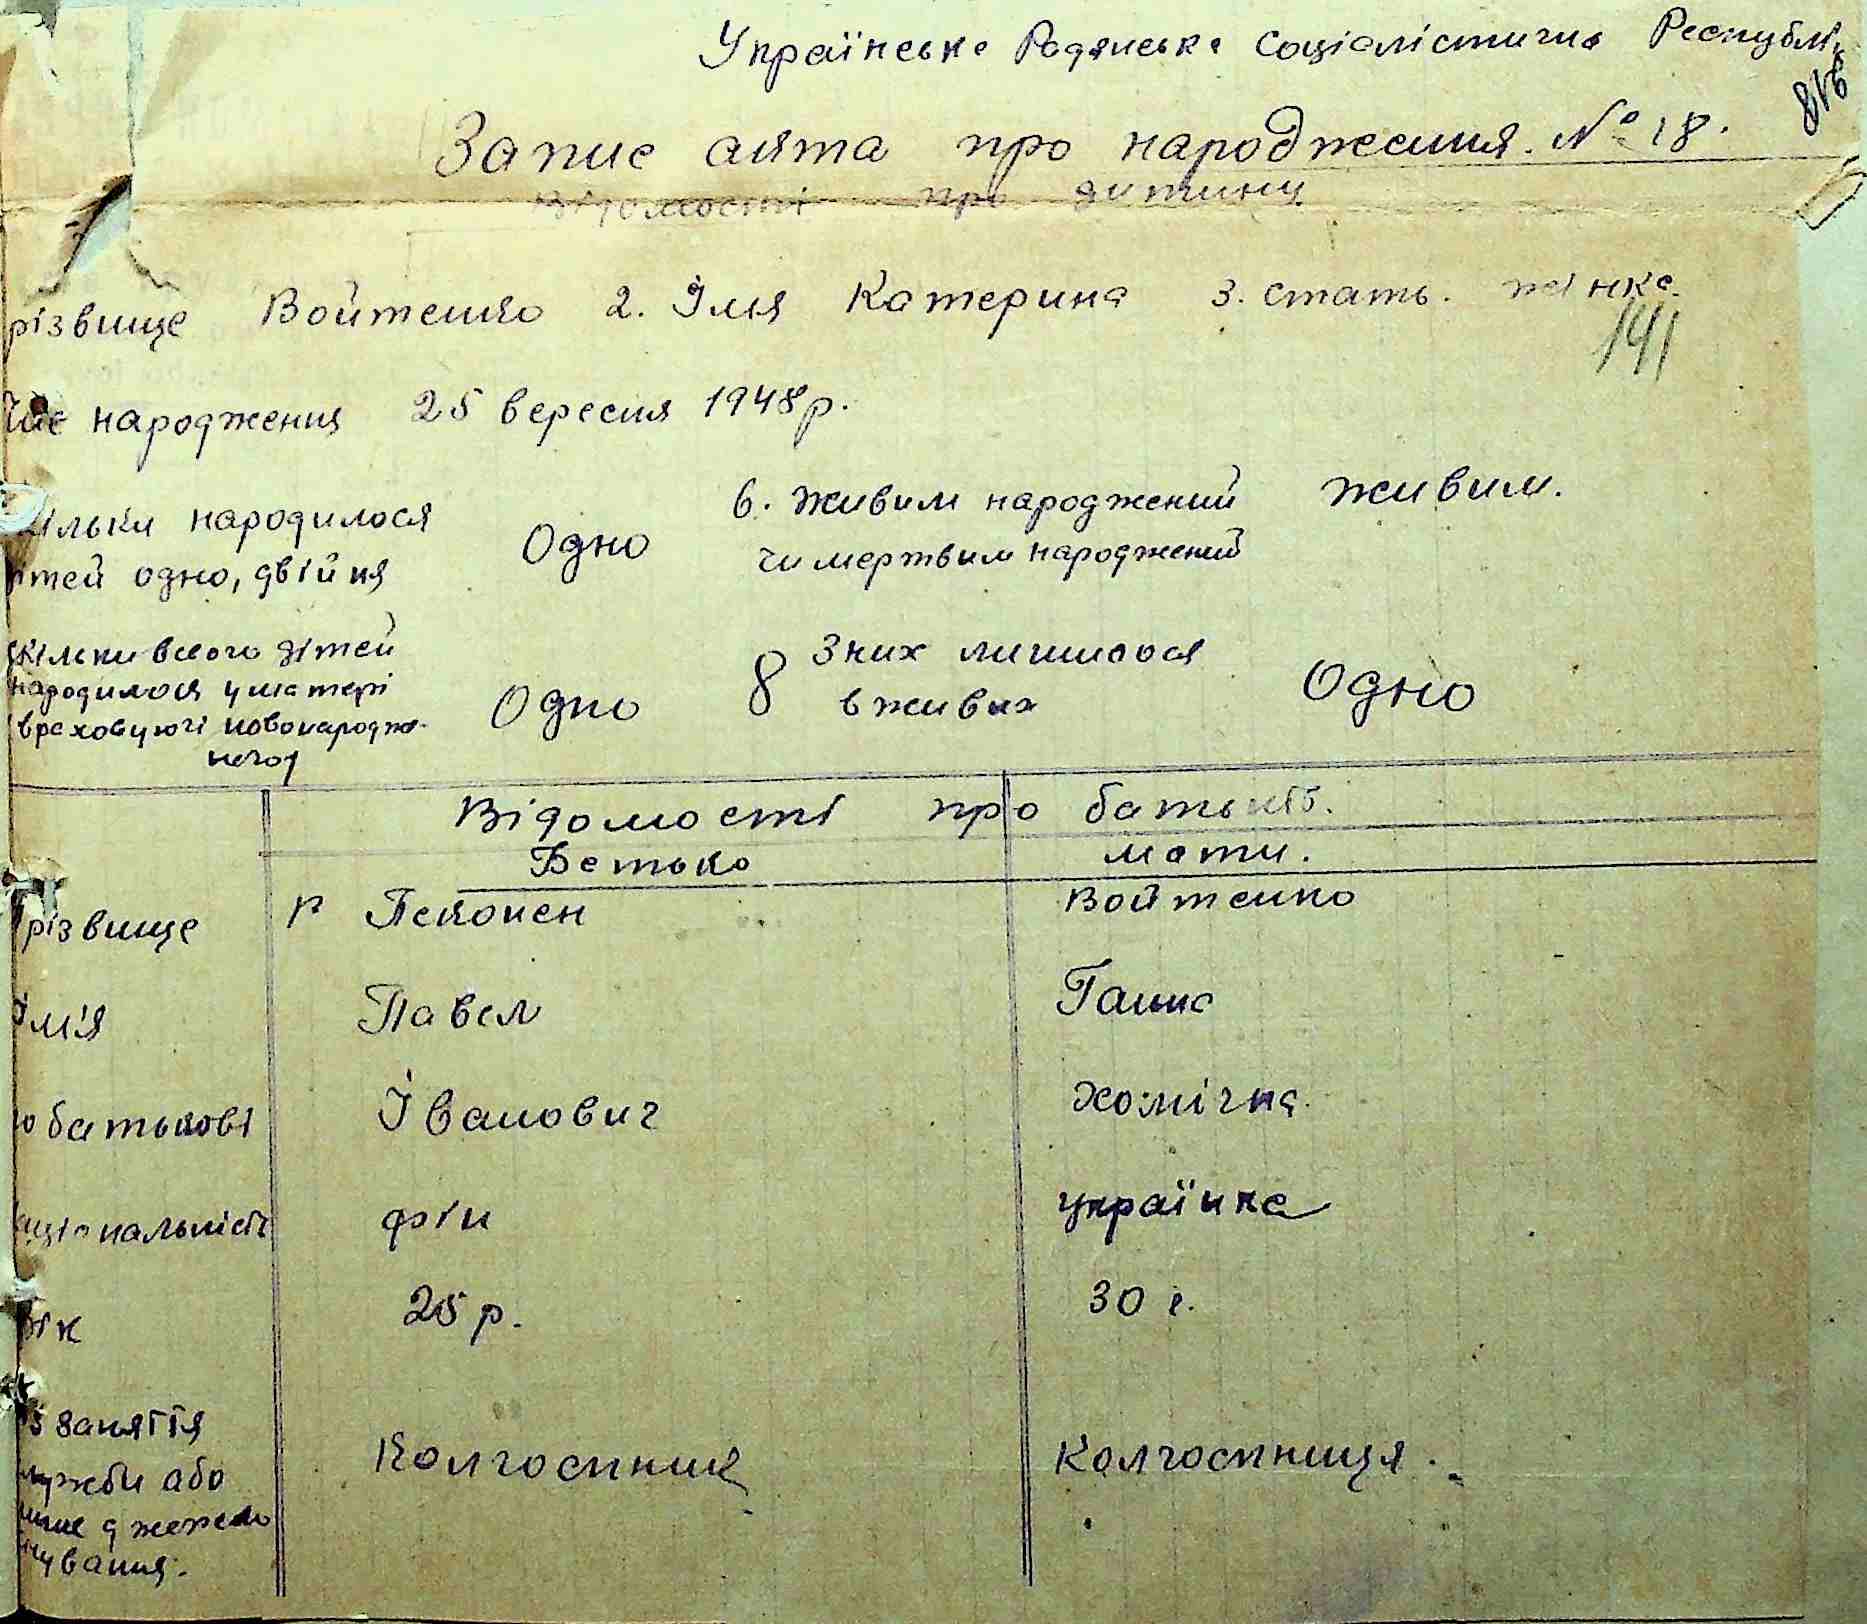 Українська Радянська Соціалістична Республік
816
Запис акта про народження. № 18.
Відомості про дитину
різвище Войтенко 2. Імя Катерина 3. стать. жінка.
141
Час народження 25 вересня 1948 р.
кільки народилося
ітей одно, двійня
Одно
6. живим народжений
чи мертвим народжений
живим.
кільки всього дітей
народилося у матері
враховуючі новонародже-
ного)
Одно
8 З них лишилося
в живих
Одно
Відомості про батьків.
Батько мати.
різвище Пеконен Войтенко
Ім'я Павел Ганна
о батькові Іванович Хомічна.
аціональність фін українка
вік 25 р. 30 р.
з заняття
лужби або
інше джерело
нування.
Колгоспник Колгоспниця.